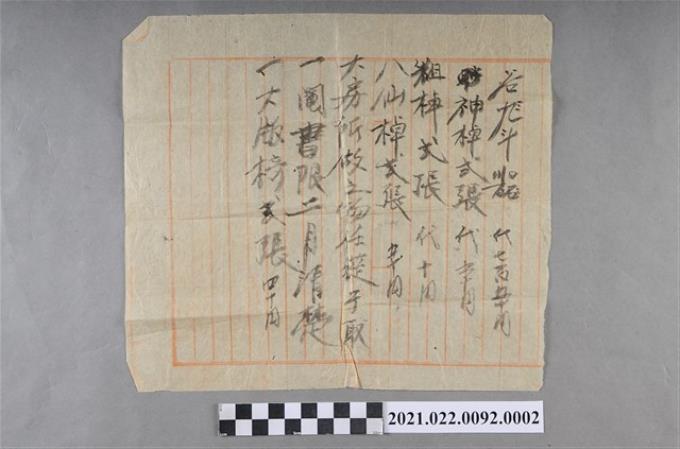 谷尨斗噐 代七百五十円
神棹弍張 代六十円
粗棹弍張 代十円
八仙棹弍張 五十円
大房所做之物任從予取
一圖書限二月清楚
一大版椅弍張 四十円
2021.022.0092.0002